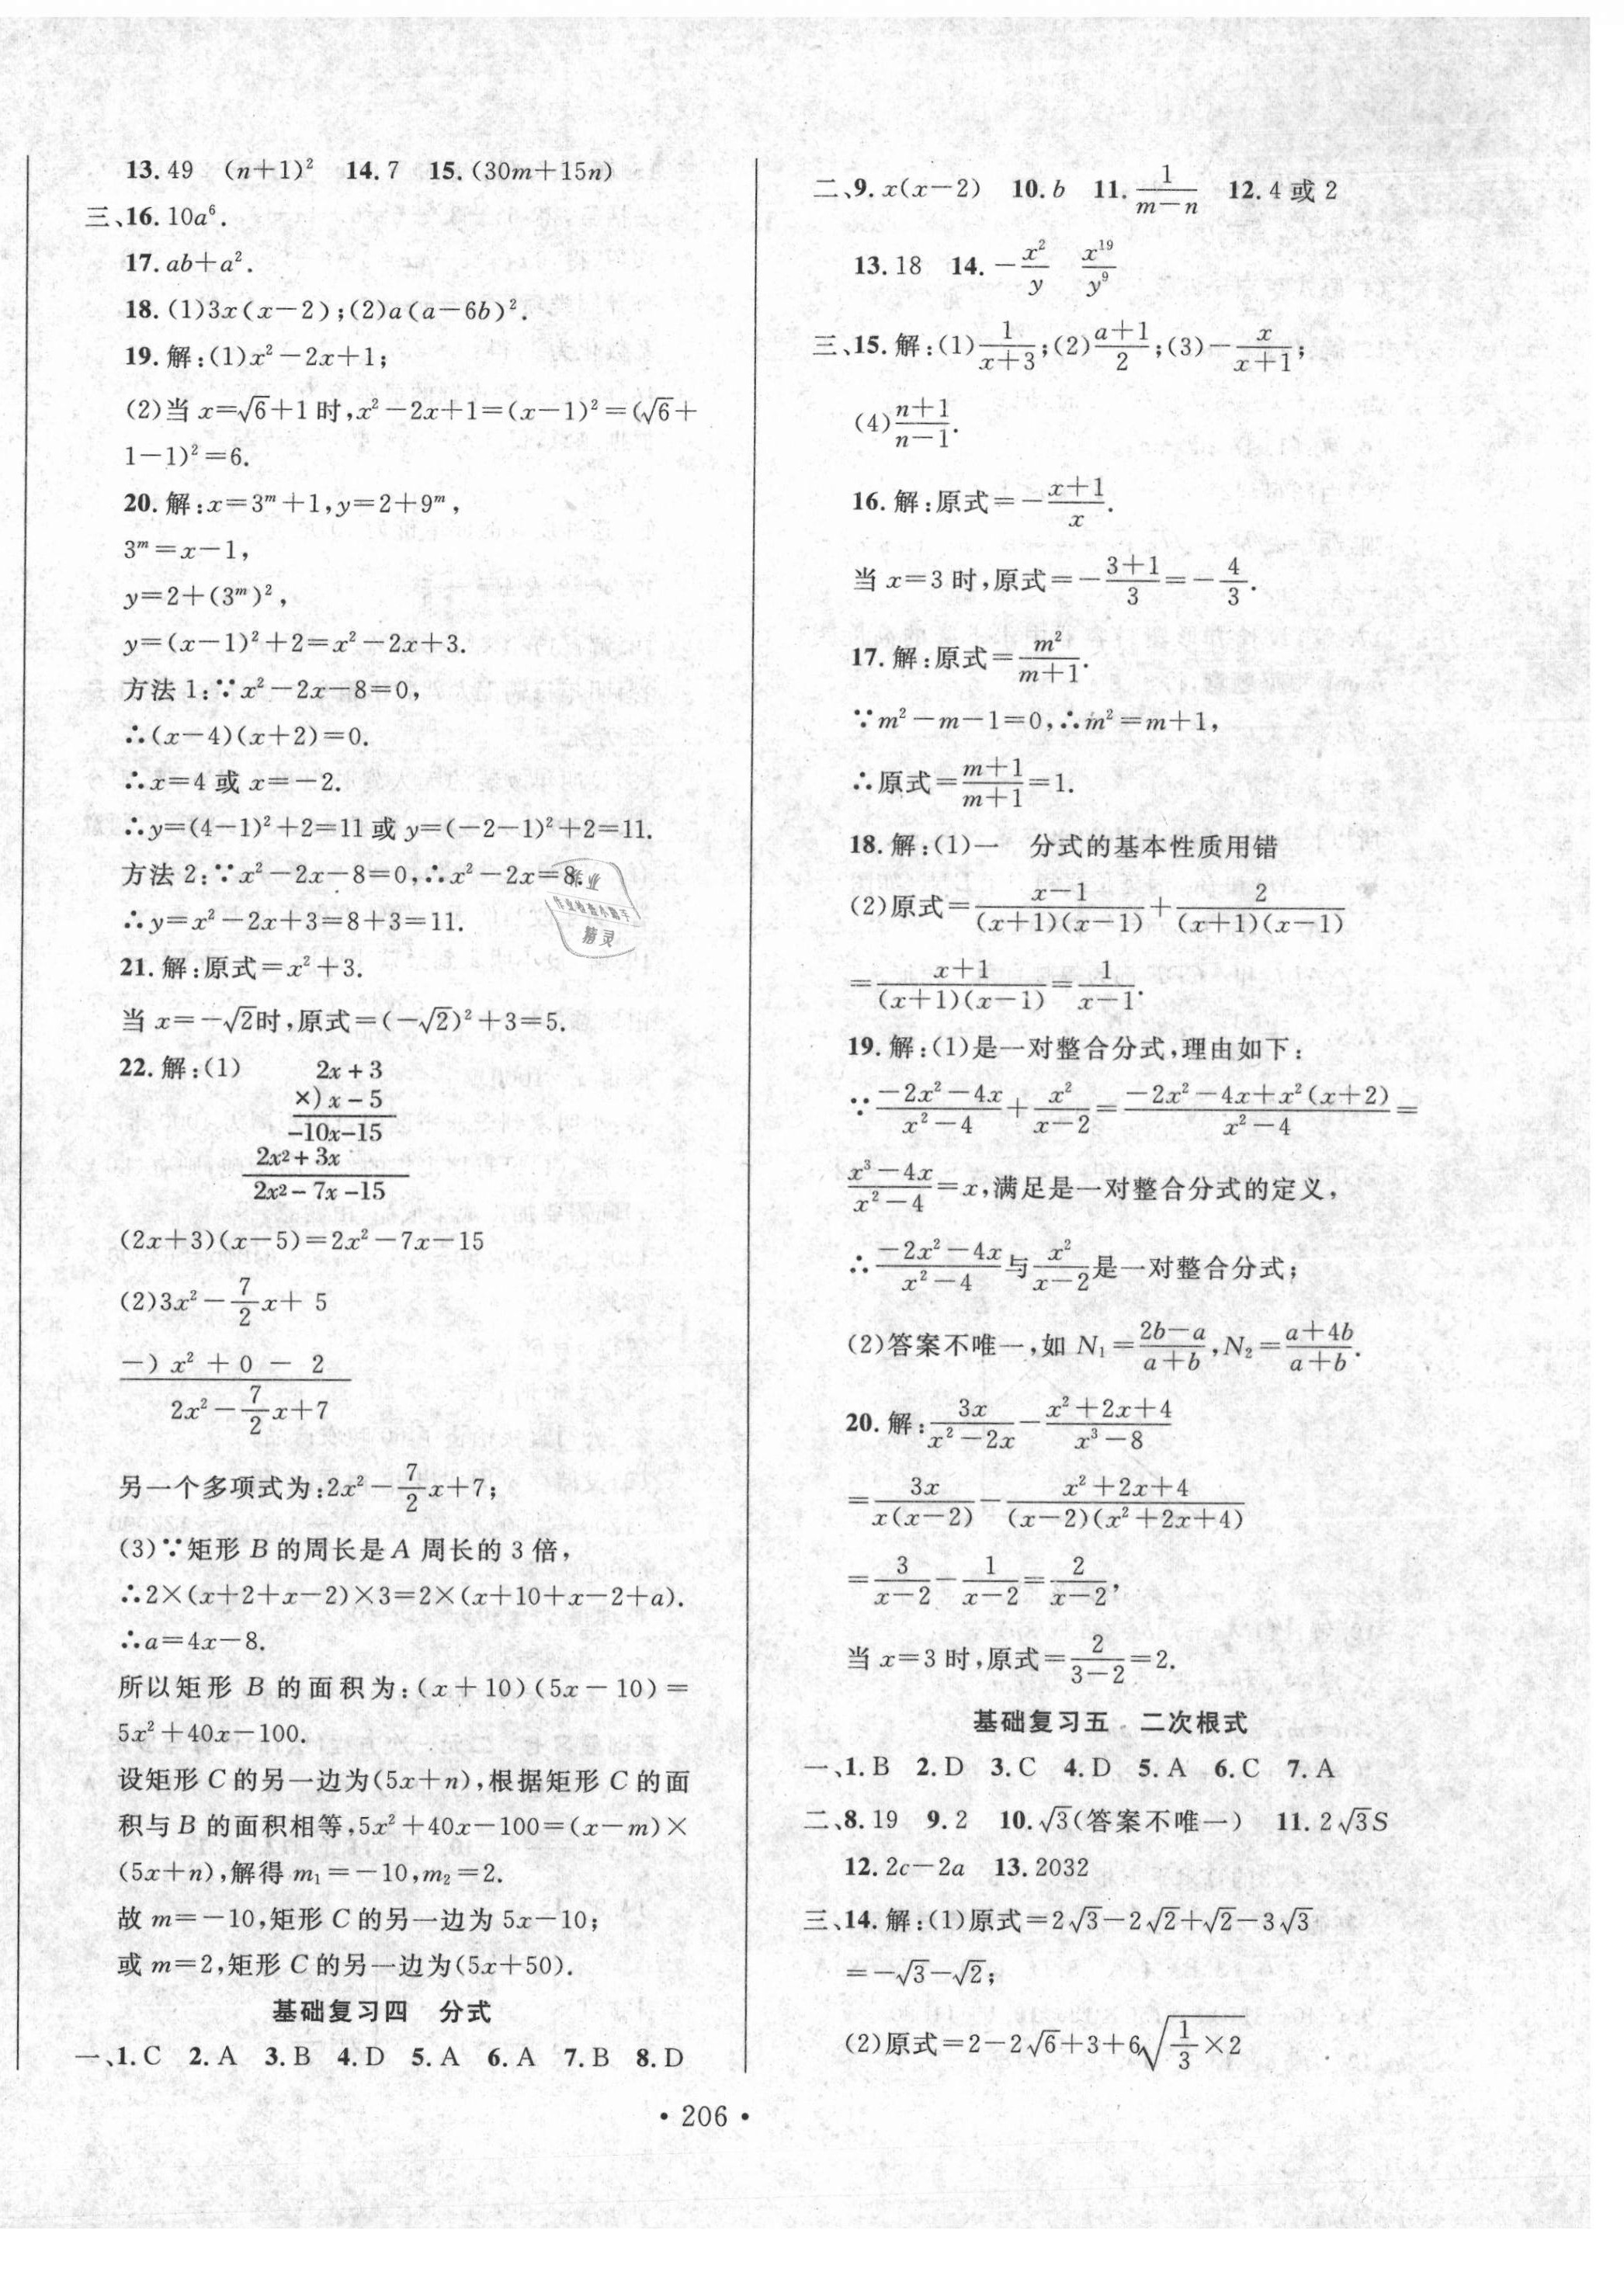 13.49 (n+1)² 14.7 15.(30m+15n)
三、16.10a⁶.
17.ab+a².
18.(1)3x(x-2);(2)a(a-6b)².
19.解:(1)x²-2x+1;
(2)当 x=√6+1时,x²-2x+1=(x-1)²=(√6+
1-1)²=6.
20.解:x=3ᵐ+1,y=2+9ᵐ,
3ᵐ=x-1,
y=2+(3ᵐ)²,
y=(x-1)²+2=x²-2x+3.
方法1:∵x²-2x-8=0,
∴(x-4)(x+2)=0.
∴x=4或 x=-2.
∴y=(4-1)²+2=11或 y=(-2-1)²+2=11.
方法2:∵x²-2x-8=0,∴x²-2x=8.
∴y=x²-2x+3=8+3=11.
21.解:原式=x²+3.
当 x=-√2时,原式=(-√2)²+3=5.
22.解:(1) 2x+3
×) x-5
-10x-15
2x²+3x
2x²-7x-15
(2x+3)(x-5)=2x²-7x-15
(2)3x²-7/2x+ 5
-) x² + 0 - 2
2x²-7/2x+7
另一个多项式为:2x²-7/2x+7;
(3)∵矩形 B 的周长是 A 周长的 3 倍,
∴2×(x+2+x-2)×3=2×(x+10+x-2+a).
∴a=4x-8.
所以矩形 B 的面积为:(x+10)(5x-10)=
5x²+40x-100.
设矩形 C 的另一边为(5x+n),根据矩形 C 的面
积与 B 的面积相等,5x²+40x-100=(x-m)×
(5x+n),解得 m₁=-10,m₂=2.
故 m=-10,矩形 C 的另一边为 5x-10;
或 m=2,矩形 C 的另一边为(5x+50).
基础复习四 分式
一、1.C 2.A 3.B 4.D 5.A 6.A 7.B 8.D
二、9.x(x-2) 10.b 11.1/(m-n) 12.4或2
13.18 14.-x²/y x¹⁹/y⁹
三、15.解:(1)1/(x+3);(2)(a+1)/2;(3)-x/(x+1);
(4)(n+1)/(n-1).
16.解:原式=-(x+1)/x.
当 x=3时,原式=-(3+1)/3=-4/3.
17.解:原式=m²/(m+1).
∵m²-m-1=0,∴m²=m+1,
∴原式=(m+1)/(m+1)=1.
18.解:(1)一 分式的基本性质用错
(2)原式=(x-1)/((x+1)(x-1))+2/((x+1)(x-1))
=(x+1)/((x+1)(x-1))=1/(x-1).
19.解:(1)是一对整合分式,理由如下:
∵(-2x²-4x)/(x²-4)+x²/(x-2)=(-2x²-4x+x²(x+2))/(x²-4)=
(x³-4x)/(x²-4)=x,满足是一对整合分式的定义,
∴(-2x²-4x)/(x²-4)与x²/(x-2)是一对整合分式;
(2)答案不唯一,如 N₁=(2b-a)/(a+b),N₂=(a+4b)/(a+b).
20.解:3x/(x²-2x)-(x²+2x+4)/(x³-8)
=3x/(x(x-2))-(x²+2x+4)/((x-2)(x²+2x+4))
=3/(x-2)-1/(x-2)=2/(x-2),
当 x=3时,原式=2/(3-2)=2.
基础复习五 二次根式
一、1.B 2.D 3.C 4.D 5.A 6.C 7.A
二、8.19 9.2 10.√3(答案不唯一) 11.2√3S
12.2c-2a 13.2032
三、14.解:(1)原式=2√3-2√2+√2-3√3
=-√3-√2;
(2)原式=2-2√6+3+6√(1/3×2)
• 206 •
作业
作业检查小助手
精灵